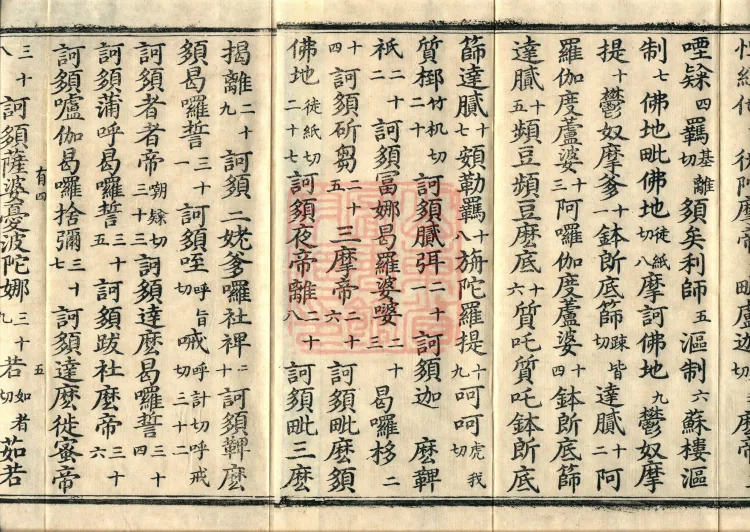 喹𨽻四羈基離切須矣利師五漚制六蘇樓漚
制七佛地毗佛地徒紙切八摩訶佛地九鬱奴摩
提十鬱奴摩爹十一鉢斫底篩疎皆切達膩十二阿
羅伽度蘆婆十三阿羅伽度蘆婆十四鉢斫底篩
達膩十五頻豆頻豆麽底十六質吒質吒鉢斫底
篩達膩十七頞勒羈十八旃陀羅提十九呵呵虎我切
質㭨竹机切二十訶須膩弭二十一訶須迦麽鞞
祇二十二訶須富娜曷羅婆嘙二十三曷羅移二
十四訶須斫芻二十五三摩帝二十六訶須毗麽須
佛地徒紙切二十七訶須夜帝離二十八訶須毗三麽
揭離二十九訶須二姥爹囉社裨三十訶須鞞麽
須曷囉誓三十一訶須咥呼旨切呼計切呼戒切三十二
訶須者者帝三十三訶須達麽曷囉誓三十四
訶須蒲呼曷囉誓三十五訶須跋社麽帝三十六
訶須嚧伽曷囉捨彌三十七訶須達麽徙蜜帝
三十八訶須薩婆憂波陀娜三十九若如者切茹若
有四 五